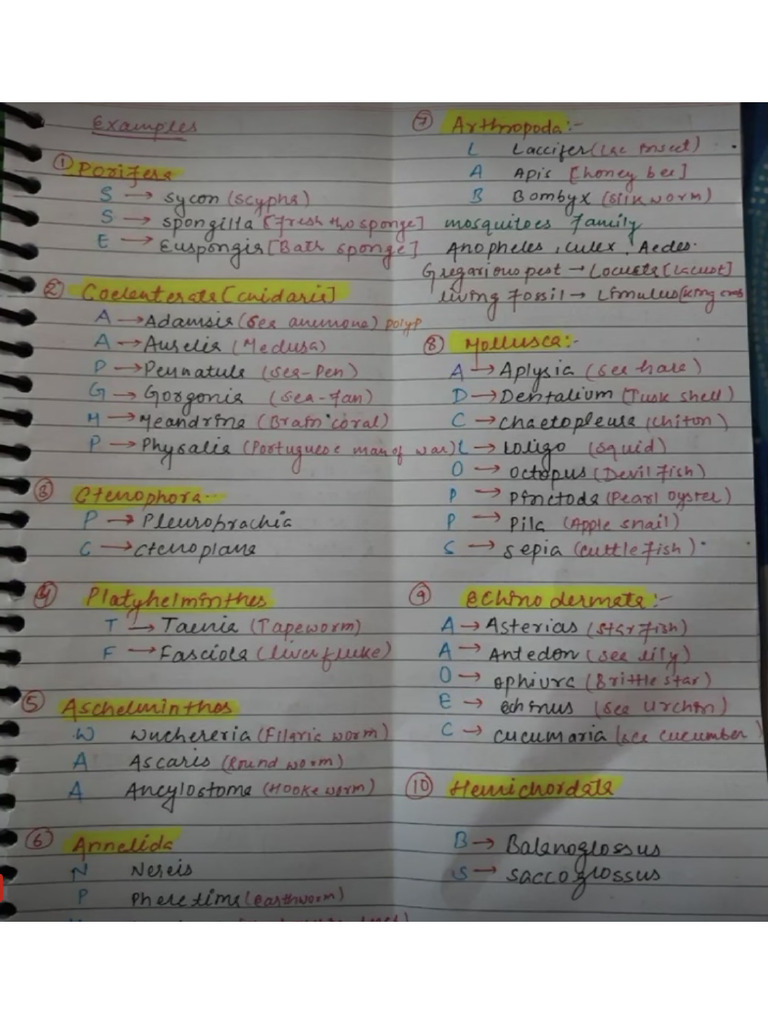 Examples
① Porifera
S → Sycon (Scypha)
S → Spongilla [Fresh H2O sponge]
E → Euspongia [Bath sponge]
② Coelenterata [Cnidaria]
A → Adamsia (Sea anemone) polyp
A → Aurelia (Medusa)
P → Pennatula (Sea-Pen)
G → Gorgonia (Sea-fan)
M → Meandrina (Brain coral)
P → Physalia (Portuguese man of war)
③ Ctenophora
P → Pleurobrachia
C → Ctenoplana
④ Platyhelminthes
T → Taenia (Tapeworm)
F → Fasciola (liver fluke)
⑤ Aschelminthes
W Wuchereria (Filaria worm)
A Ascaris (Round worm)
A Ancylostoma (Hooke worm)
⑥ Annelida
N Nereis
P Pheretima (earthworm)
⑦ Arthropoda:-
L Laccifer (Lac insect)
A Apis [honey bee]
B Bombyx (silk worm)
mosquitoes family
Anopheles, Culex, Aedes.
Gregarious pest → Locusta [Locust]
living fossil → Limulus (King crab
⑧ Mollusca:-
A → Aplysia (Sea hare)
D → Dentalium (Tusk shell)
C → Chaetopleura (Chiton)
L → Loligo (Squid)
O → Octopus (Devil fish)
P → Pinctada (Pearl oyster)
P → Pila (Apple snail)
S → Sepia (Cuttle fish)
⑨ Echinodermata:-
A → Asterias (Star fish)
A → Antedon (Sea lily)
O → Ophiura (Brittle star)
E → Echinus (Sea Urchin)
C → Cucumaria (Sea cucumber)
⑩ Hemichordata
B → Balanoglossus
S → Saccoglossus